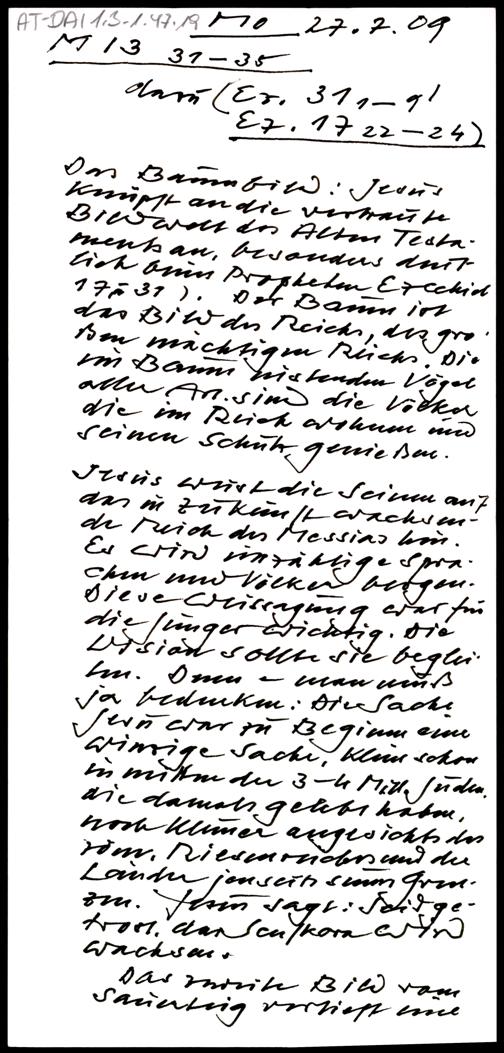 AT-DA I 1.3-1.47.19
Mo 27.7.09
M 13 31–35
dazu (Ez. 31 1–9!
Ez. 17 22–24)
Das Baumbild: Jesus
knüpft an die vertraute
Bildwelt des Alten Testa-
ments an, besonders deut-
lich beim Propheten Ezechiel
17 u 31). Der Baum ist
das Bild des Reichs, des gro-
ßen mächtigen Reichs. Die
im Baum nistenden Vögel
aller Art sind die Völker
die im Reich wohnen und
seinen Schutz genießen.
Jesus weist die Seinen auf
das in Zukunft wachsen-
de Reich des Messias hin.
Es wird unzählige Spra-
chen und Völker bergen.
Diese Weissagung war für
die Jünger wichtig. Die
Vision sollte sie beglei-
ten. Denn – man muß
ja bedenken: Die Sache
Jesu war zu Beginn eine
winzige Sache, klein schon
inmitten der 3–4 Mill. Juden,
die damals gelebt haben,
noch kleiner angesichts des
röm. Riesenreiches und der
Länder jenseits seiner Gren-
zen. Jesus sagt: Seid ge-
trost, das Senfkorn wird
wachsen.
Das zweite Bild vom
Sauerteig vertieft eine